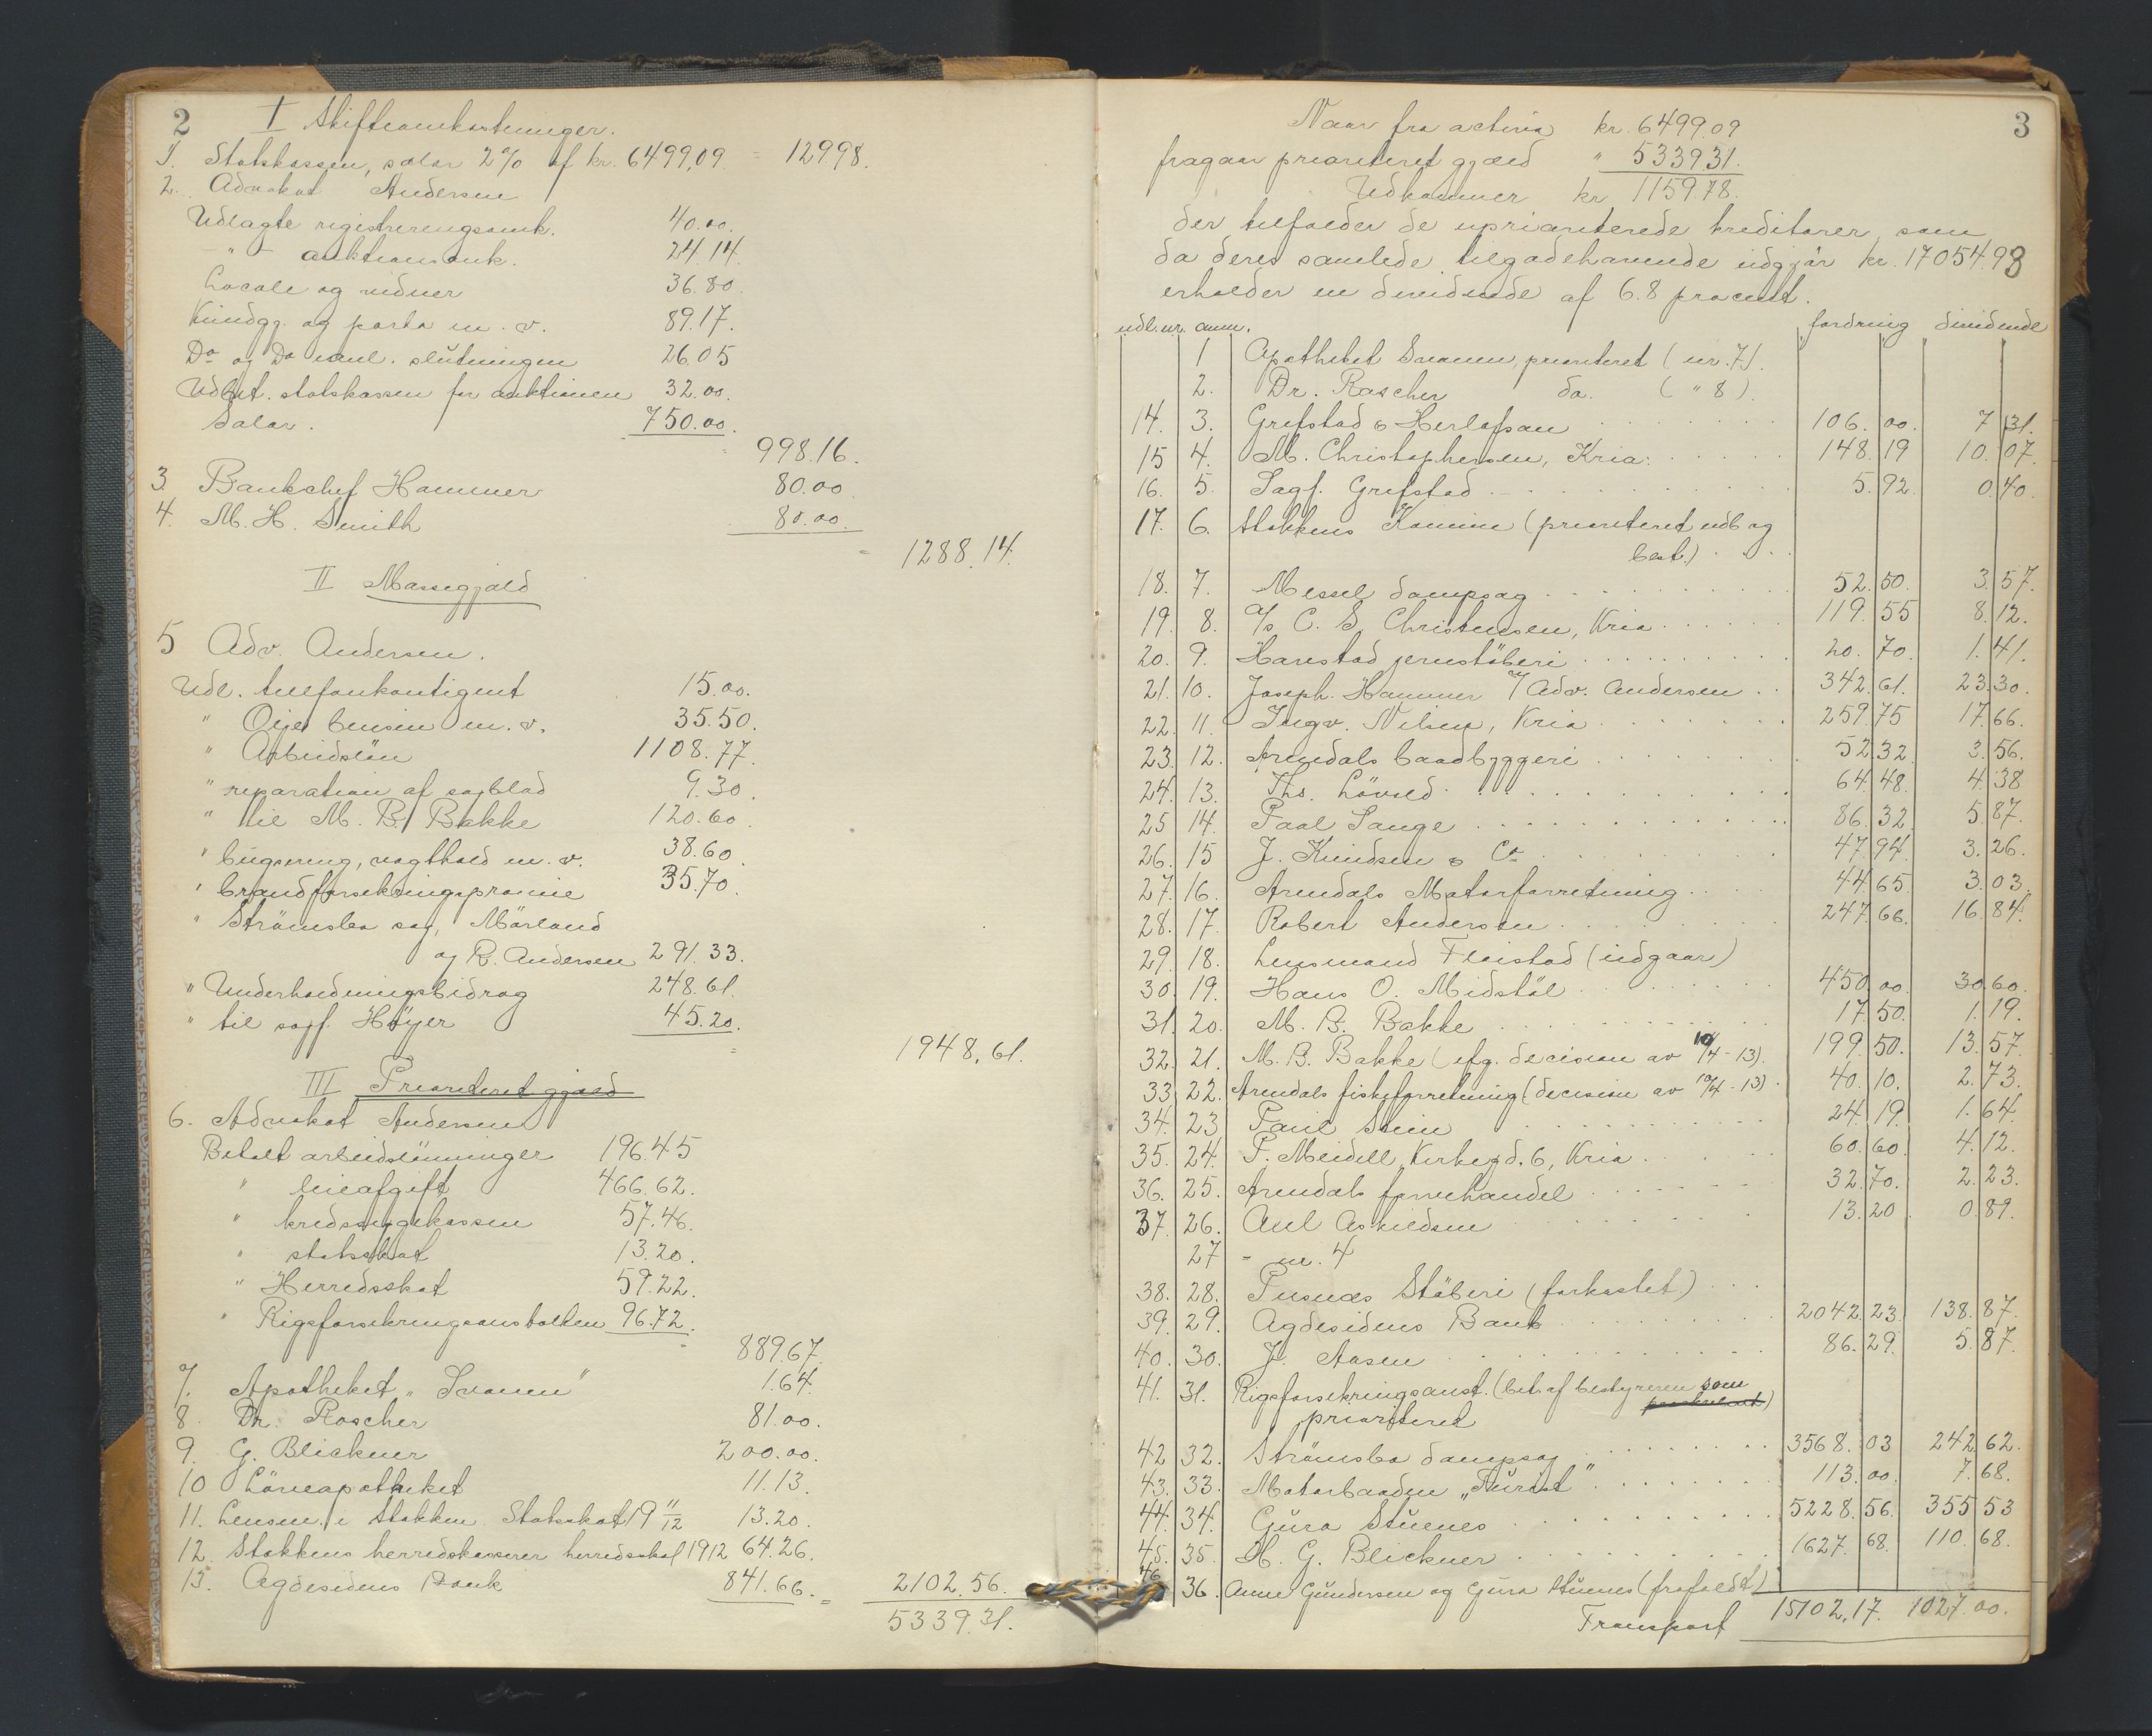 2
I Skifteomkostninger.
1. Statskassen, salær 2% af kr. 6499,09 = 129.98.
2. Advokat Andersen
Udlagte registreringsomk. 40.00.
- " - auktionsomk. 24.14.
Locale og vidner 36.80.
Kundgj. og porto m. v. 89.17.
Do og Do vml. slutningen 26.05
Udbet. statskassen for auktionen 32.00.
Salær. 750.00.
998.16.
3. Bankchef Hammer 80.00
4. M. H. Smith 80.00.
= 1288.14.
II Massegjæld
5 Adv. Andersen.
Udl. telefonkontigent 15.00.
" Olje bensin m. v. 35.50.
" Arbeidsløn 1108.77.
" reparation af sagblad 9.30.
" til M. B. Bakke 120.60.
" bugsering, vagthold m. v. 38.60.
" brandforsikringspræmie 35.70.
" Strømsbo sag, Mørland
og R. Andersen 291.33.
" Underholdningsbidrag 248.61.
" til sagf. Høyer 45.20.
= 1948,61.
III Prioriteret gjæld
6. Advokat Andersen
Betalt arbeidslønninger 196.45
" leieafgift 466.62.
" kredssygekassen 57.46.
" statsskat 13.20.
" Herredsskat 59.22.
" Rigsforsikringsanstalten 96.72.
889.67.
7. Apotheket "Svanen" 1.64.
8. Dr. Roscher 81.00.
9. G. Blickner 200.00.
10 Løveapotheket 11.13.
11. Lensm. i Stokken Statsskat 19 11/12 13.20.
12. Stokkens herredskasserer herredsskat 1912 64.26.
13. Agdesidens Bank 841.66. = 2102.56.
5339.31.
3
Naar fra activa kr. 6499.09
fragaar prioriteret gjæld " 5339.31.
Udkommer kr 1159.78.
der tilfalder de uprioriterede kreditorer, som
da deres samlede tilgodehavende udgjør kr. 17054.93
erholder en dividende af 6.8 procent.
udl. nr. anm. fordring dividende
1 Apotheket Svanen, prioriteret (nr. 7).
2. Dr. Roscher do. ( " 8).
14. 3. Grefstad & Herlofson 106.00. 7.31.
15 4. M. Christophersen, Kria. 148.19 10.07.
16. 5. Sagf. Grefstad 5.92. 0.40.
17. 6. Stokkens Komune (prioriteret udb og
best.)
18. 7. Messel dampsag 52.50. 3.57.
19. 8. A/s C. S. Christensen, Kria 119.55 8.12.
20. 9. Harestad jernstøberi 20.70. 1.41.
21. 10. Joseph. Hammer v/ Adv. Andersen 342.61. 23.30.
22. 11. Ingv. Nilsen, Kria 259.75 17.66.
23. 12. Arendals baadbyggeri 52.32 3.56.
24. 13. Ths. Løvsed 64.48. 4.38
25 14. Paal Lange 86.32 5.87.
26. 15 J. Knudsen & Co 47.94. 3.26.
27. 16. Arendals Motorforretning 44.65. 3.03.
28. 17. Robert Andersen 247.66. 16.84.
29. 18. Lensmand Fleistad (udgaar)
30. 19. Hans O. Midstøl 450.00. 30.60.
31. 20. M. B. Bakke 17.50. 1.19.
32. 21. M. B. Bakke (efg. decision av 10/4-13). 199.50. 13.57.
33. 22. Arendals fiskeforretning (decision av 10/4-13) 40.10. 2.73.
34. 23 Paul Stien 24.19. 1.64.
35. 24. P. Meidell, Kirkegd. 6, Kria 60.60. 4.12.
36. 25. Arendals farvehandel 32.70. 2.23.
37. 26. Axel Askildsen 13.20. 0.89.
27 = nr. 4
38. 28. Pusnæs Støberi (forkastet)
39. 29. Agdesidens Bank 2042.23. 138.87.
40. 30. J. Aasen 86.29. 5.87.
41. 31. Rigsforsikringsanst. (bet. af bestyreren som
prioriteret
42 32. Strømsbo dampsag 3568.03 242.62.
43. 33. Motorbaaden "Turist" 113.00. 7.68.
44. 34. Gura Stuenes 5228.56. 355.53
45. 35. H. G. Blickner 1627.68. 110.68.
46 36. Anne Gundersen og Gura Stuenes (frafaldt)
Transport 15102,17. 1027.00.